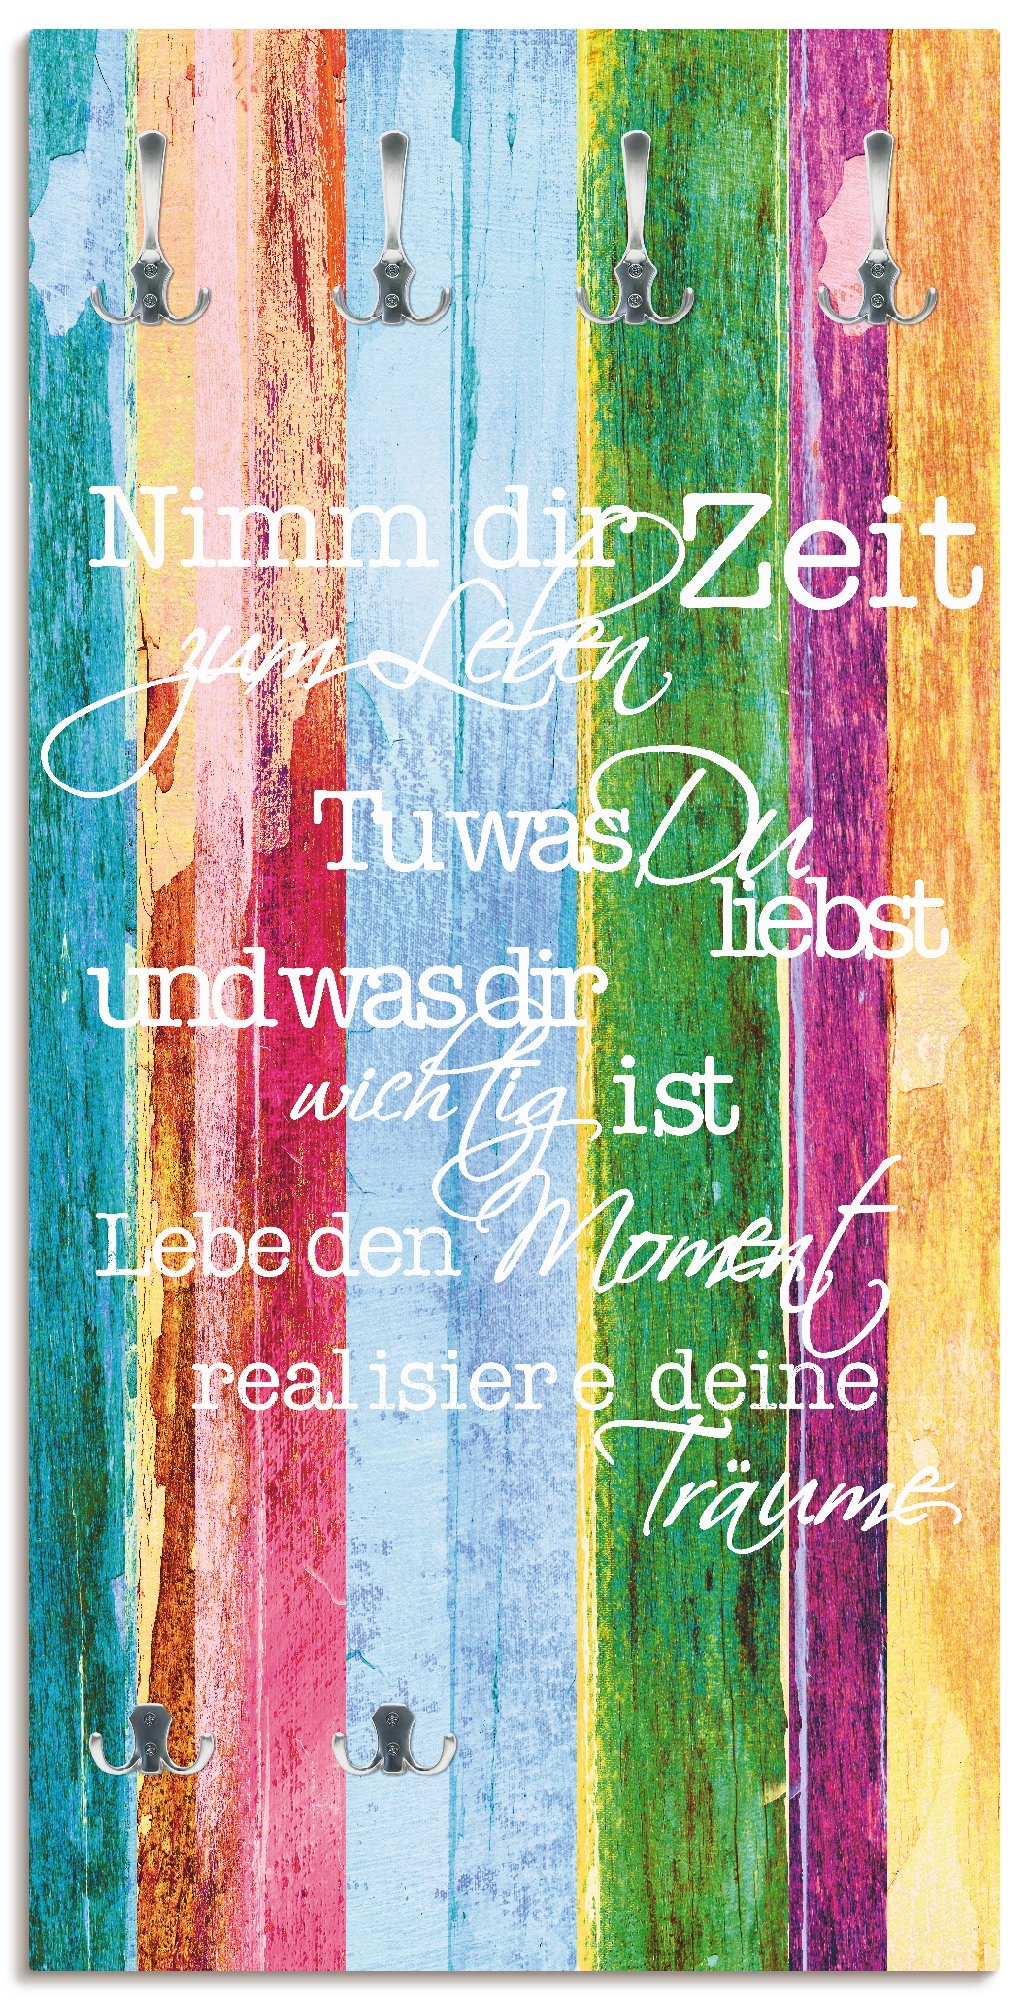 Nimm dir Zeit
zum Leben
Tu was Du
liebst
und was dir
wichtig ist
Lebe den Moment
realisiere deine
Träume